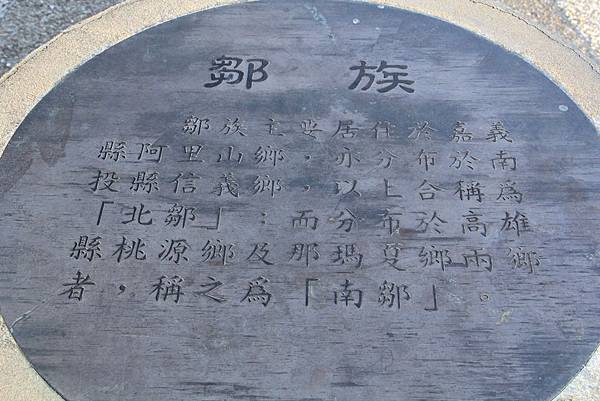 鄒 族
鄒族主要居住於嘉義
縣阿里山鄉，亦分布於南
投縣信義鄉，以上合稱為
「北鄒」；而分布於高雄
縣桃源鄉及那瑪夏鄉兩鄉
者，稱之為「南鄒」。